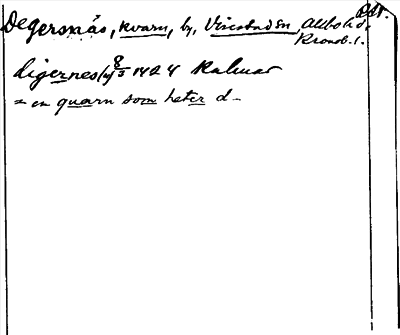 Degersnäs, kvarn, by, Virestad sn, Allbo hd,
Kronob. l.
digernes (y) 8/5 1424 Kalmar
= en quarn som heter d-